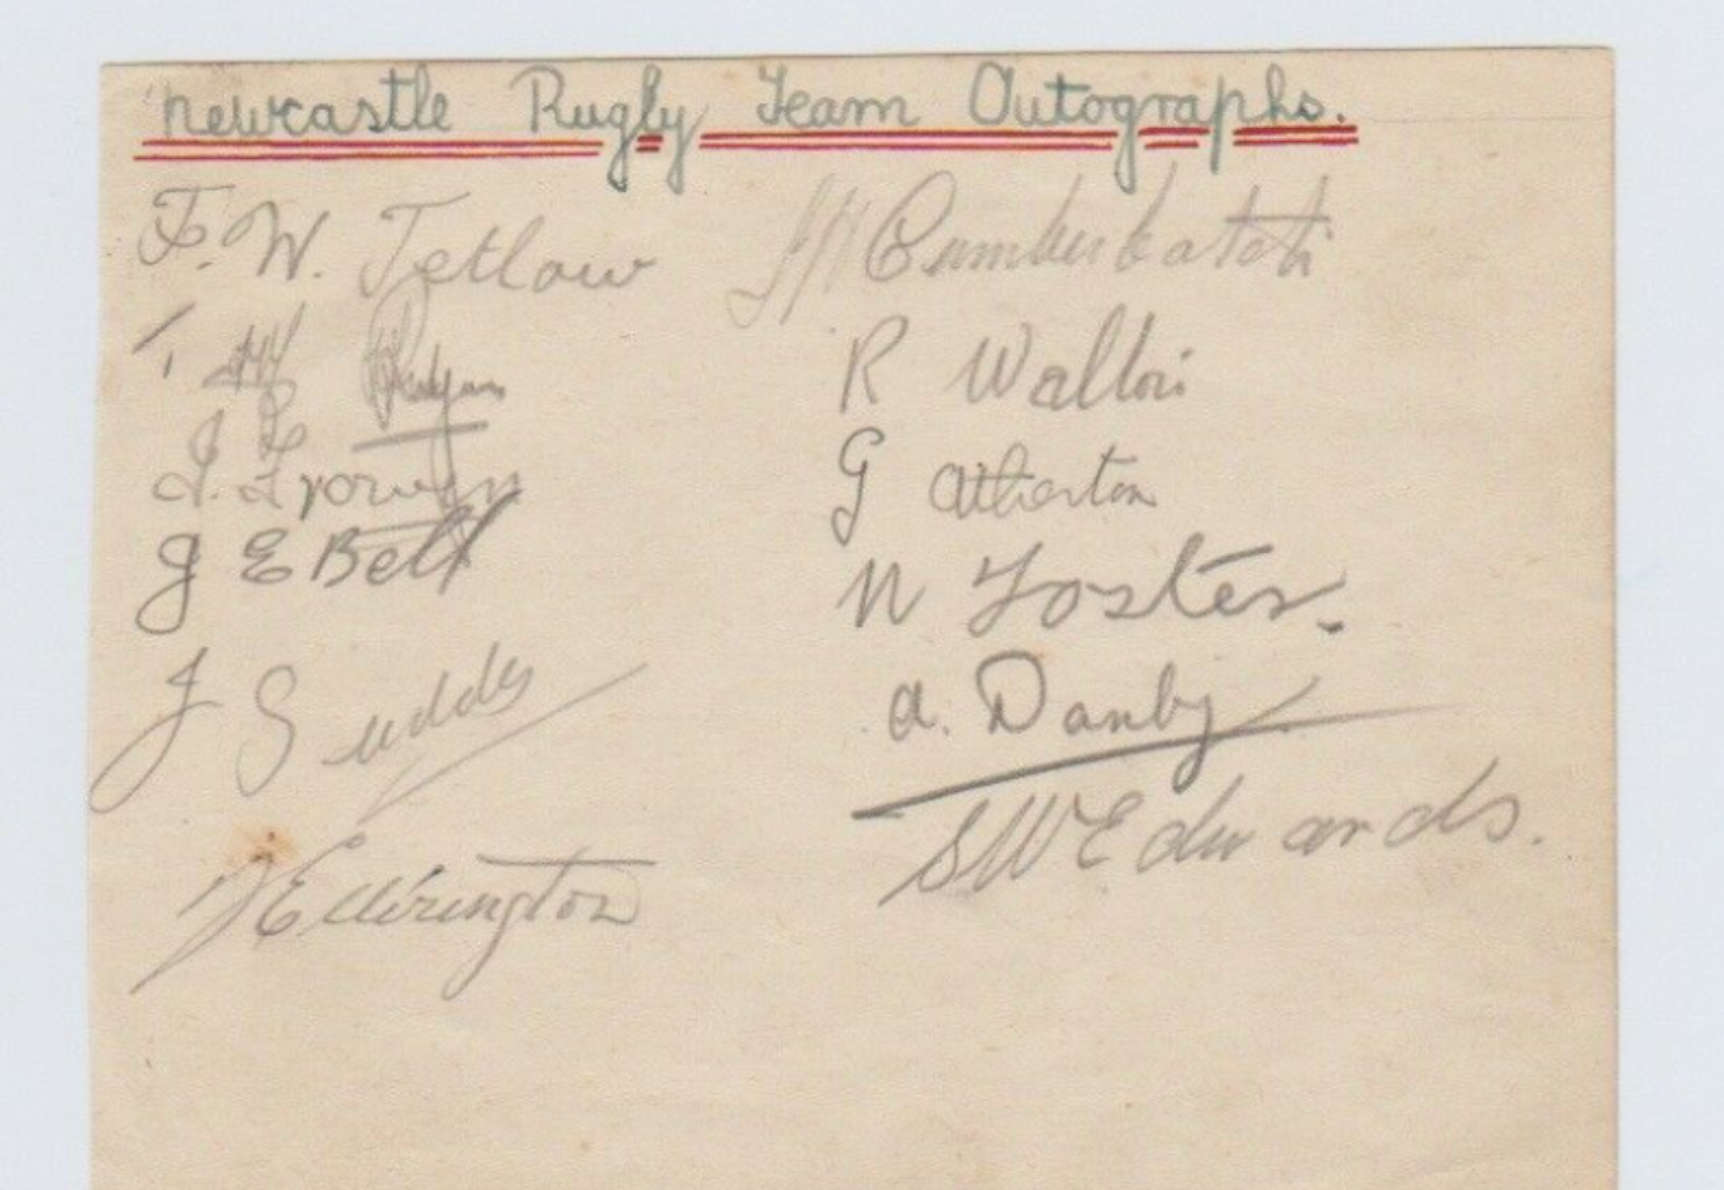 Newcastle Rugby Team Autographs.
F. W. Tetlow
J E Bell
J Sudds
Ellerington
Cumberbatch
R Walton
G Atherton
N Foster.
A. Danby
S W Edwards.